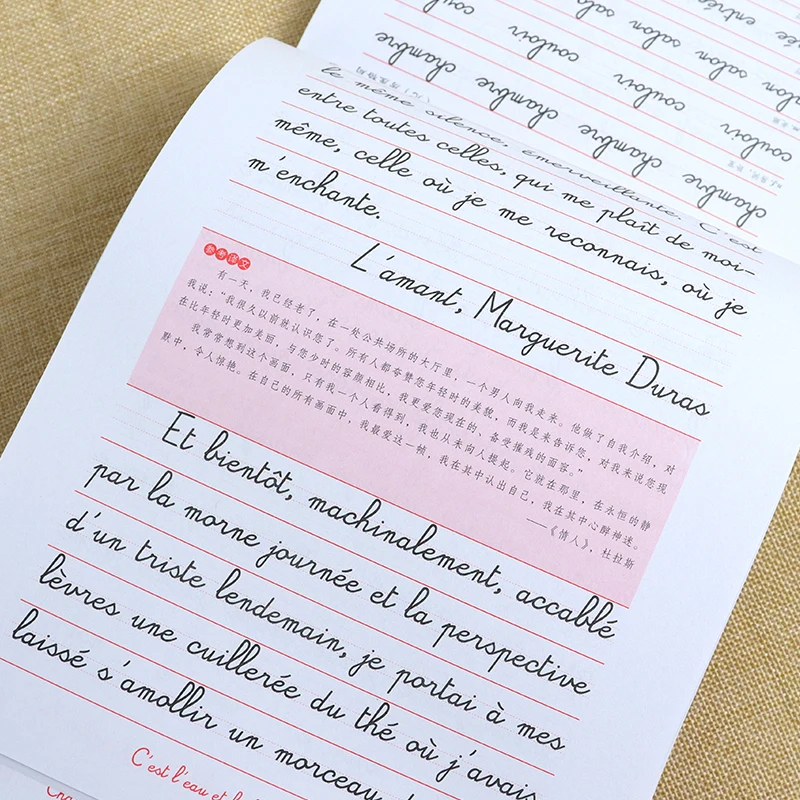 le même silence, émerveillante. C'est
entre toutes celles, qui me plaît de moi-
même, celle où je me reconnais, où je
m'enchante.
L'amant, Marguerite Duras
参考译文
有一天，我已经老了，在一处公共场所的大厅里，一个男人向我走来。他做了自我介绍，对
我说：“我很久以前就认识您了。所有人都夸赞您年轻时的美貌，而我是来告诉您，对我来说您现
在比年轻时更加美丽，与您少时的容颜相比，我更爱您现在的、备受摧残的面容。”
我常常想到这个画面，只有我一个人看得到，我也从未向人提起。它就在那里，在永恒的静
默中，令人惊艳。在自己的所有画面中，我最爱这一帧，我在其中认出自己，我在其中心醉神迷。
——《情人》，杜拉斯
Et bientôt, machinalement, accablé
par la morne journée et la perspective
d'un triste lendemain, je portai à mes
lèvres une cuillerée du thé où j'avais
laissé s'amollir un morceau
C'est l'eau et l
entrée
salon salon salon
couloir couloir couloir
chambre chambre chambre chambre